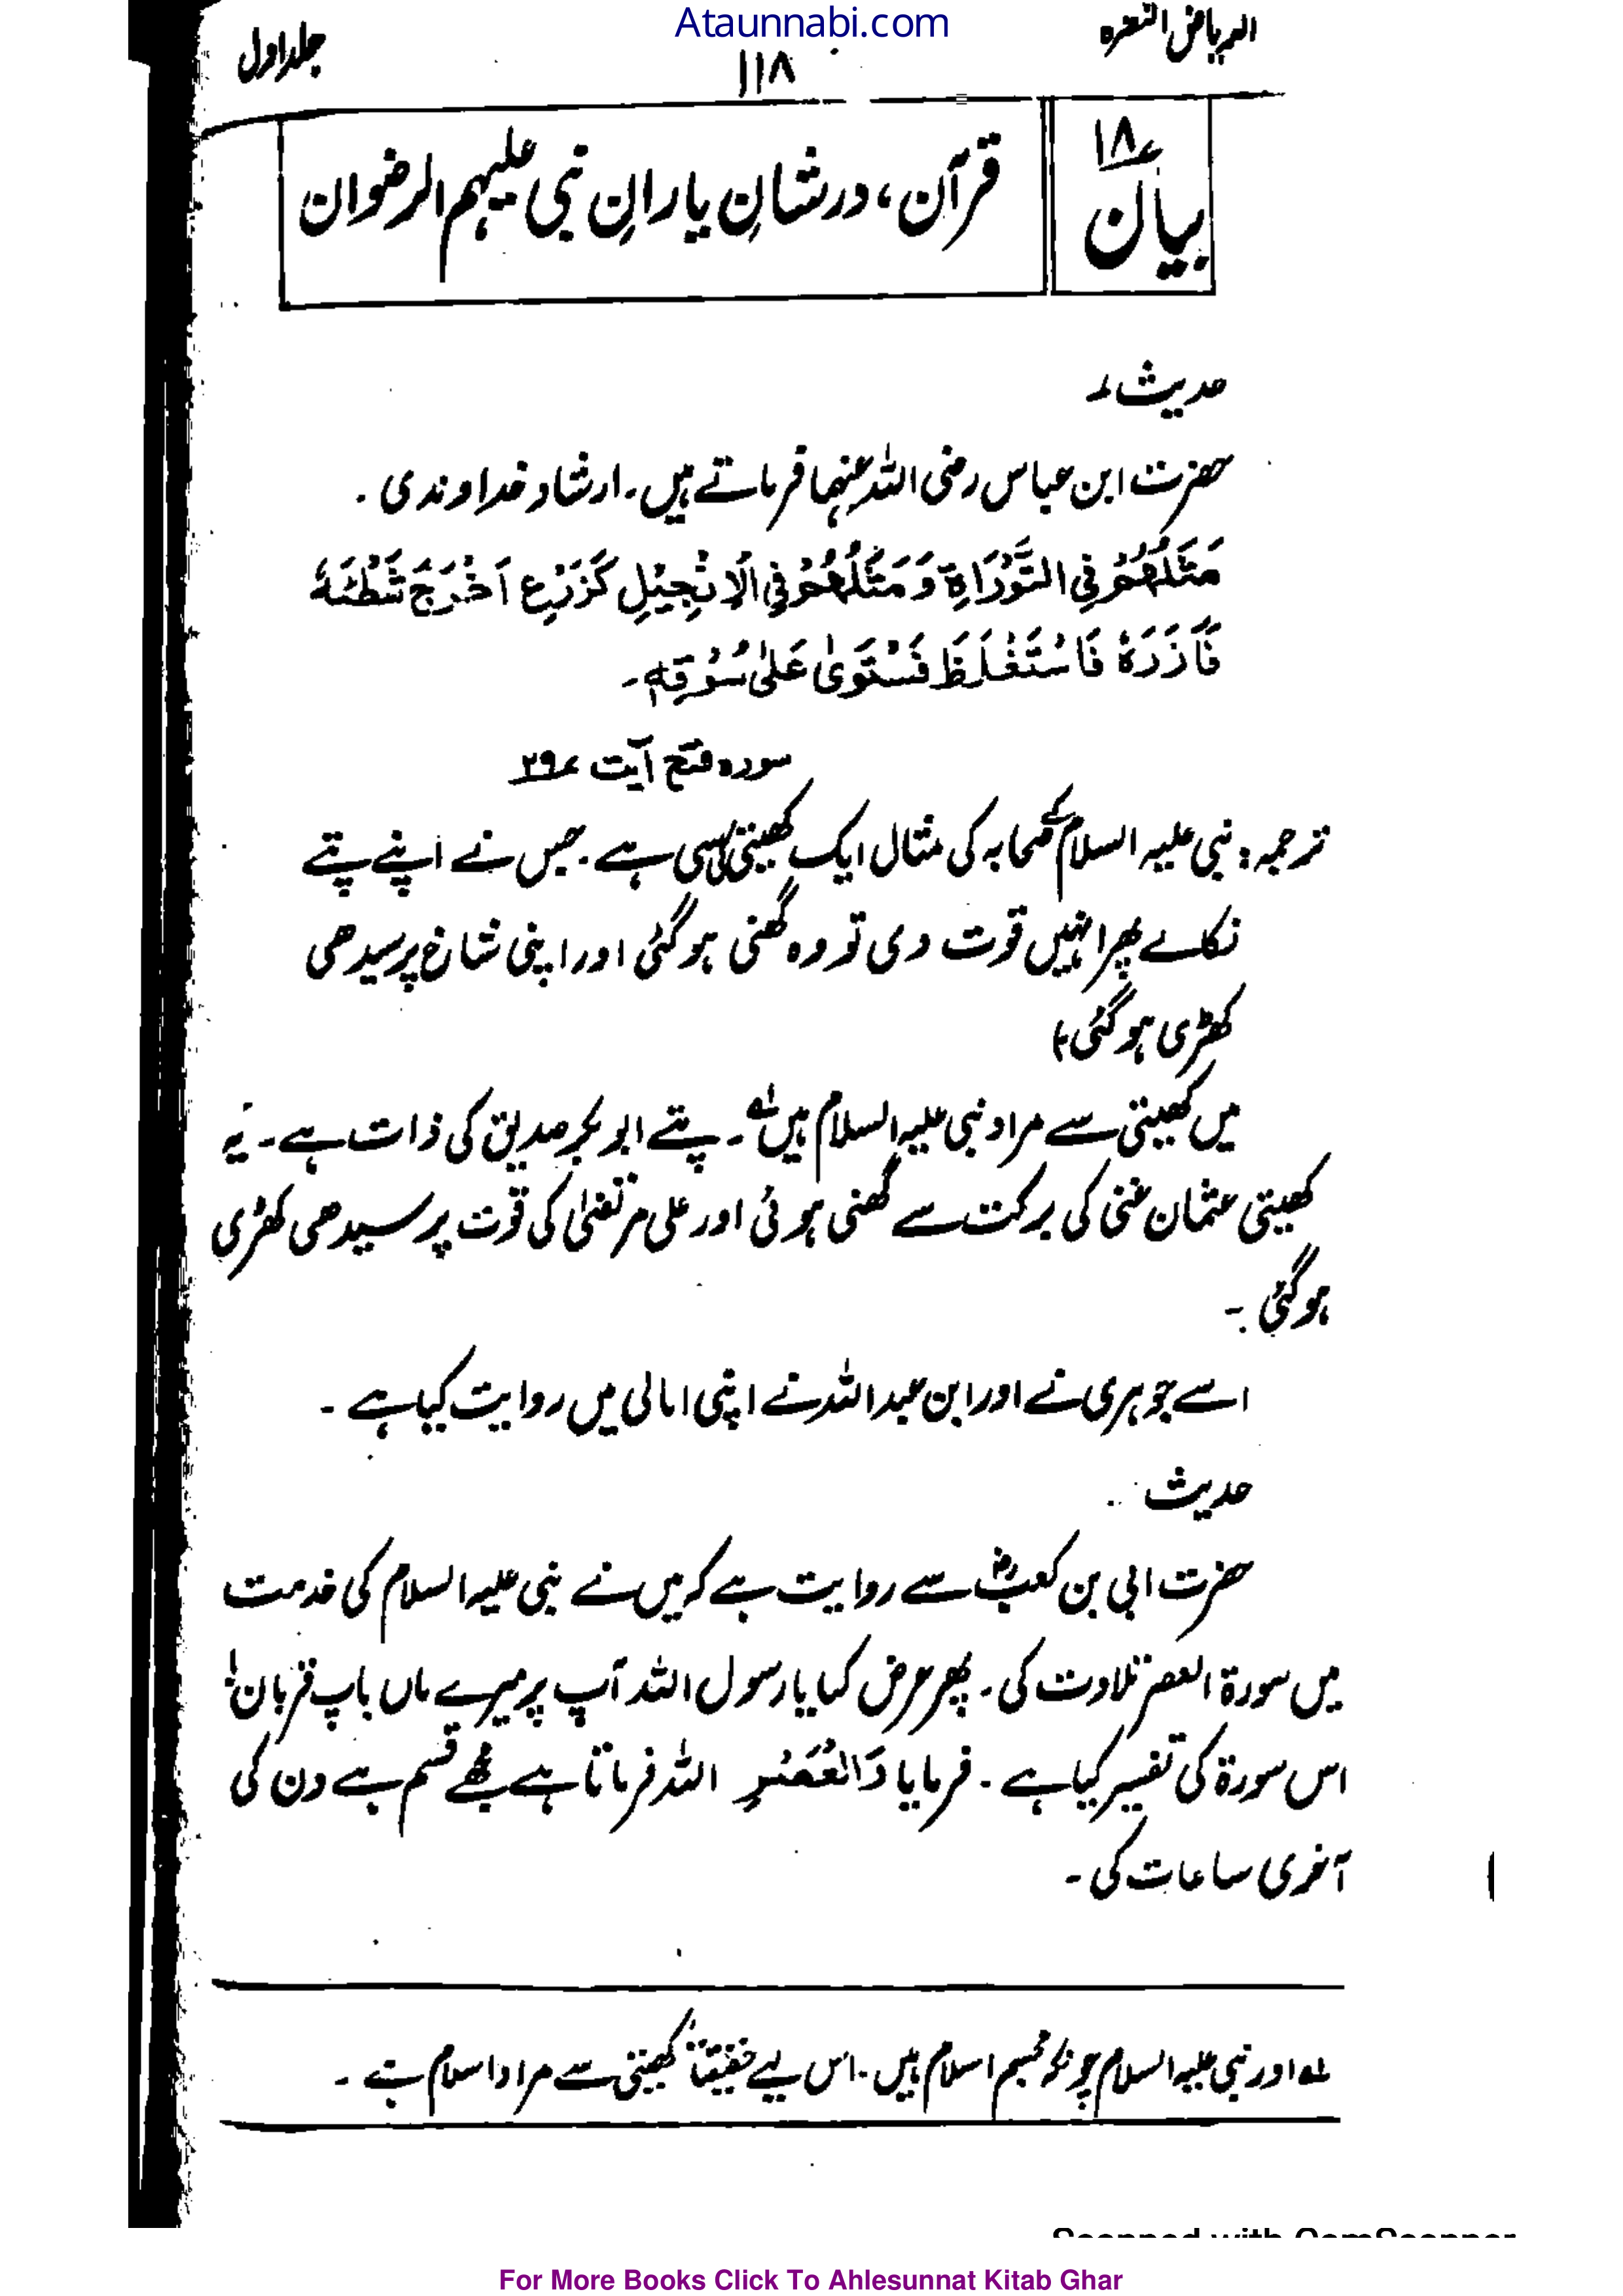 Ataunnabi.com
الریاض النضرہ
۱۱۸
جلد اول
بیان ۱۸؏
قرآن، در شانِ یارانِ نبی علیہم الرضوان
حدیث ؍
حضرت ابن عباس رضی اللہ عنہما فرماتے ہیں۔ ارشاد خداوندی ۔
مَثَلُهُمْ فِی التَّوْرَاةِ وَ مَثَلُهُمْ فِی الْاِنْجِیْلِ کَزَرْعٍ اَخْرَجَ شَطْئَهٗ
فَآزَرَهٗ فَاسْتَغْلَظَ فَسْتَوٰی عَلٰی سُوْقِهٖ ۔
سورہ فتح آیت ۲۹؏
ترجمہ: نبی علیہ السلام کے صحابہ کی مثال ایک کھیتی کی سی ہے۔ جس نے اپنے پتے
نکالے پھر انہیں قوت دی تو وہ گھنی ہو گئی اور اپنی شاخ پر سیدھی
کھڑی ہو گئی،
میں کھیتی سے مراد نبی علیہ السلام ہیں لے۔ پتے ابو بکر صدیق کی ذات ہے۔ یہ
کھیتی عثمان غنی کی برکت سے گھنی ہوئی اور علی مرتضیٰ کی قوت پر سیدھی کھڑی
ہو گئی ۔
اسے جوہری نے اور ابن عبد اللہ نے اپنی امالی میں روایت کیا ہے ۔
حدیث
حضرت ابی بن کعبؓ سے روایت ہے کہ میں نے نبی علیہ السلام کی خدمت
میں سورۃ العصر تلاوت کی۔ پھر عرض کیا یا رسول اللہ آپ پر میرے ماں باپ قربان!
اس سورۃ کی تفسیر کیا ہے ۔ فرمایا وَالْعَصْرِ اللہ فرماتا ہے مجھے قسم ہے دن کی
آخری ساعات کی ۔
لے اور نبی علیہ السلام چونکہ مجسم اسلام ہیں۔ اس لیے حقیقتاً کھیتی سے مراد اسلام ہے ۔
Scanned with CamScanner
For More Books Click To Ahlesunnat Kitab Ghar